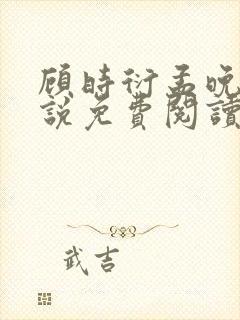 顾時衍孟晚
說免費閱讀
武吉